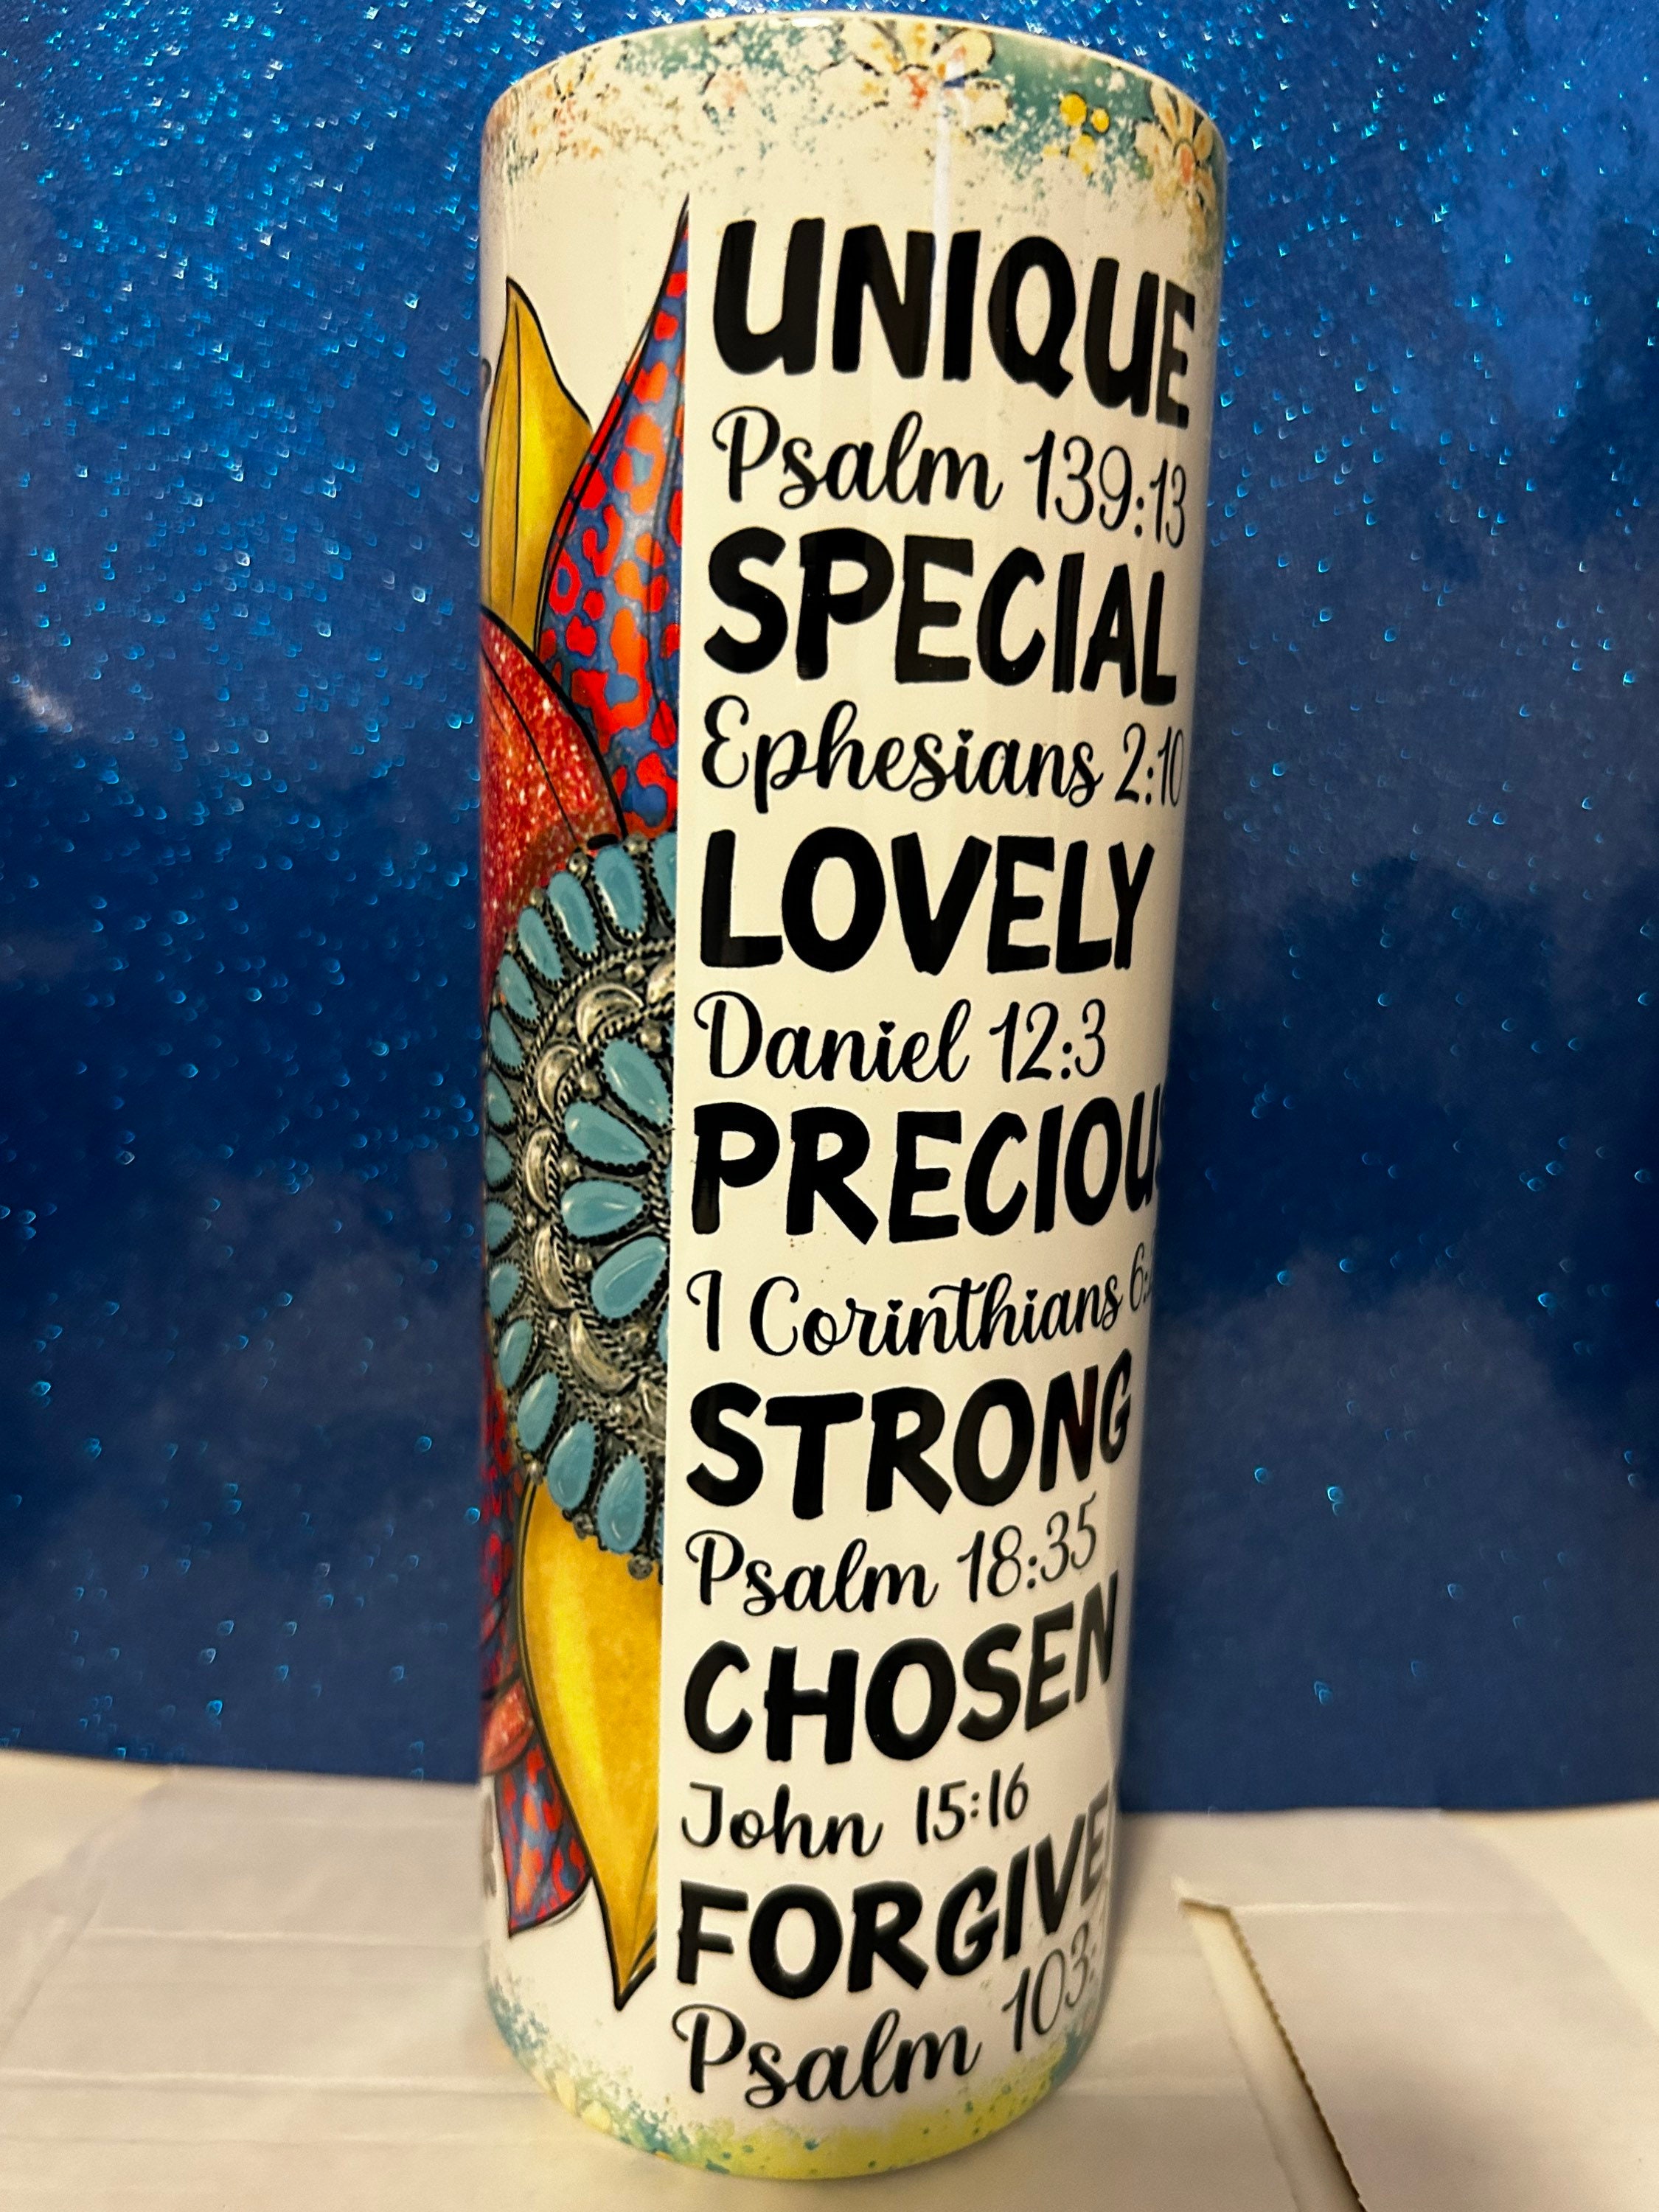 UNIQUE
Psalm 139:13
SPECIAL
Ephesians 2:10
LOVELY
Daniel 12:3
PRECIOUS
1 Corinthians 6:
STRONG
Psalm 18:35
CHOSEN
John 15:16
FORGIVE
Psalm 103: